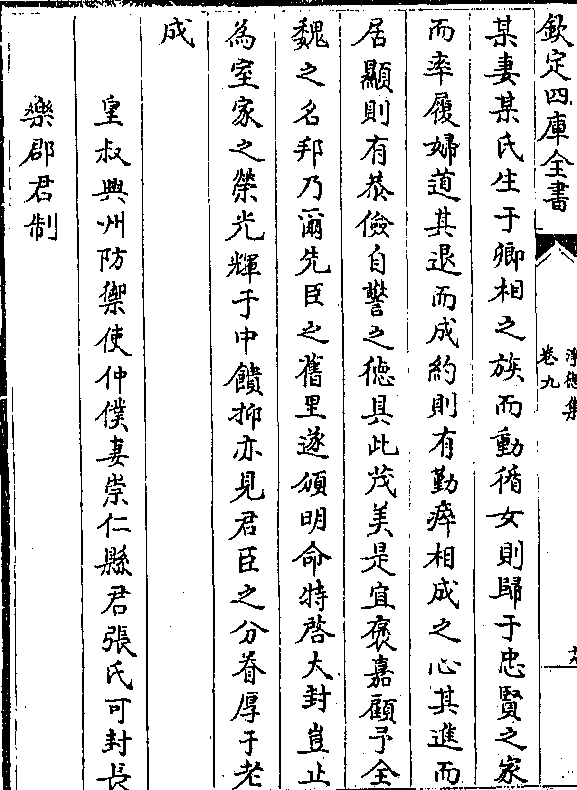 欽定四庫全書
淨德集
卷九
某妻某氏生于卿相之族而動循女則歸于忠賢之家
而率履婦道其退而成約則有勤瘁相成之心其進而
居顯則有恭儉自讐之徳具此茂美是宜褒嘉顧予全
魏之名邦乃爾先臣之舊里遂頒明命特啓大封豈止
為室家之榮光輝于中饋抑亦見君臣之分眷厚于老
成
皇叔興州防禦使仲僕妻崇仁縣君張氏可封長
樂郡君制